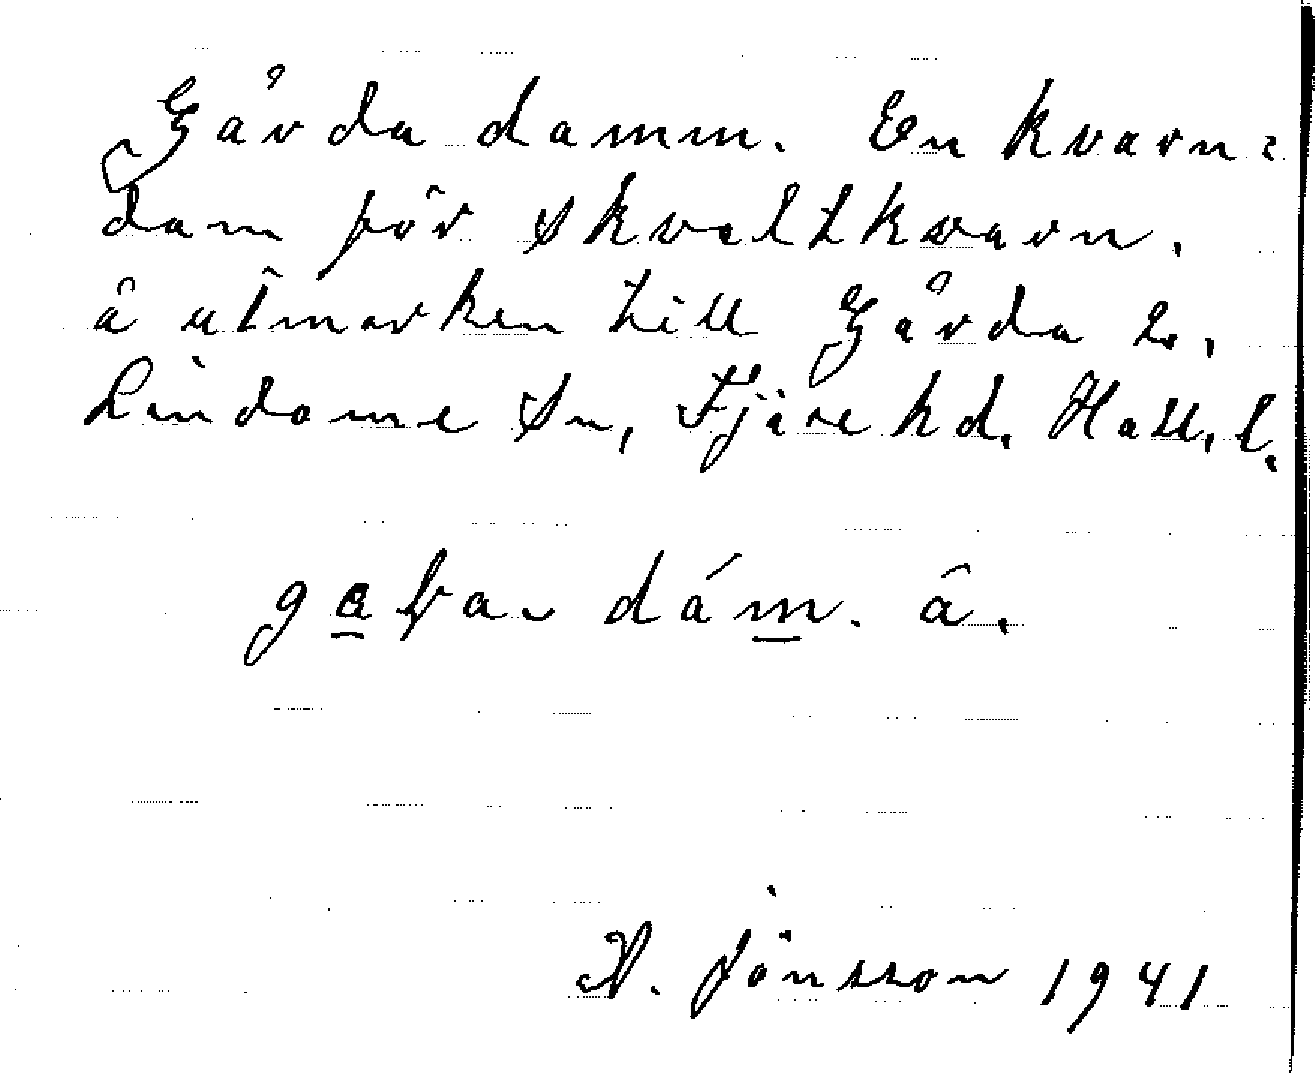 Gårda damm. En kvarn=
dam för skvaltkvarn.
å utmarken till Gårda 2.
Lindome Sn, Fjäre hd. Hall. l.
dám. å.
A. Jönsson 1941